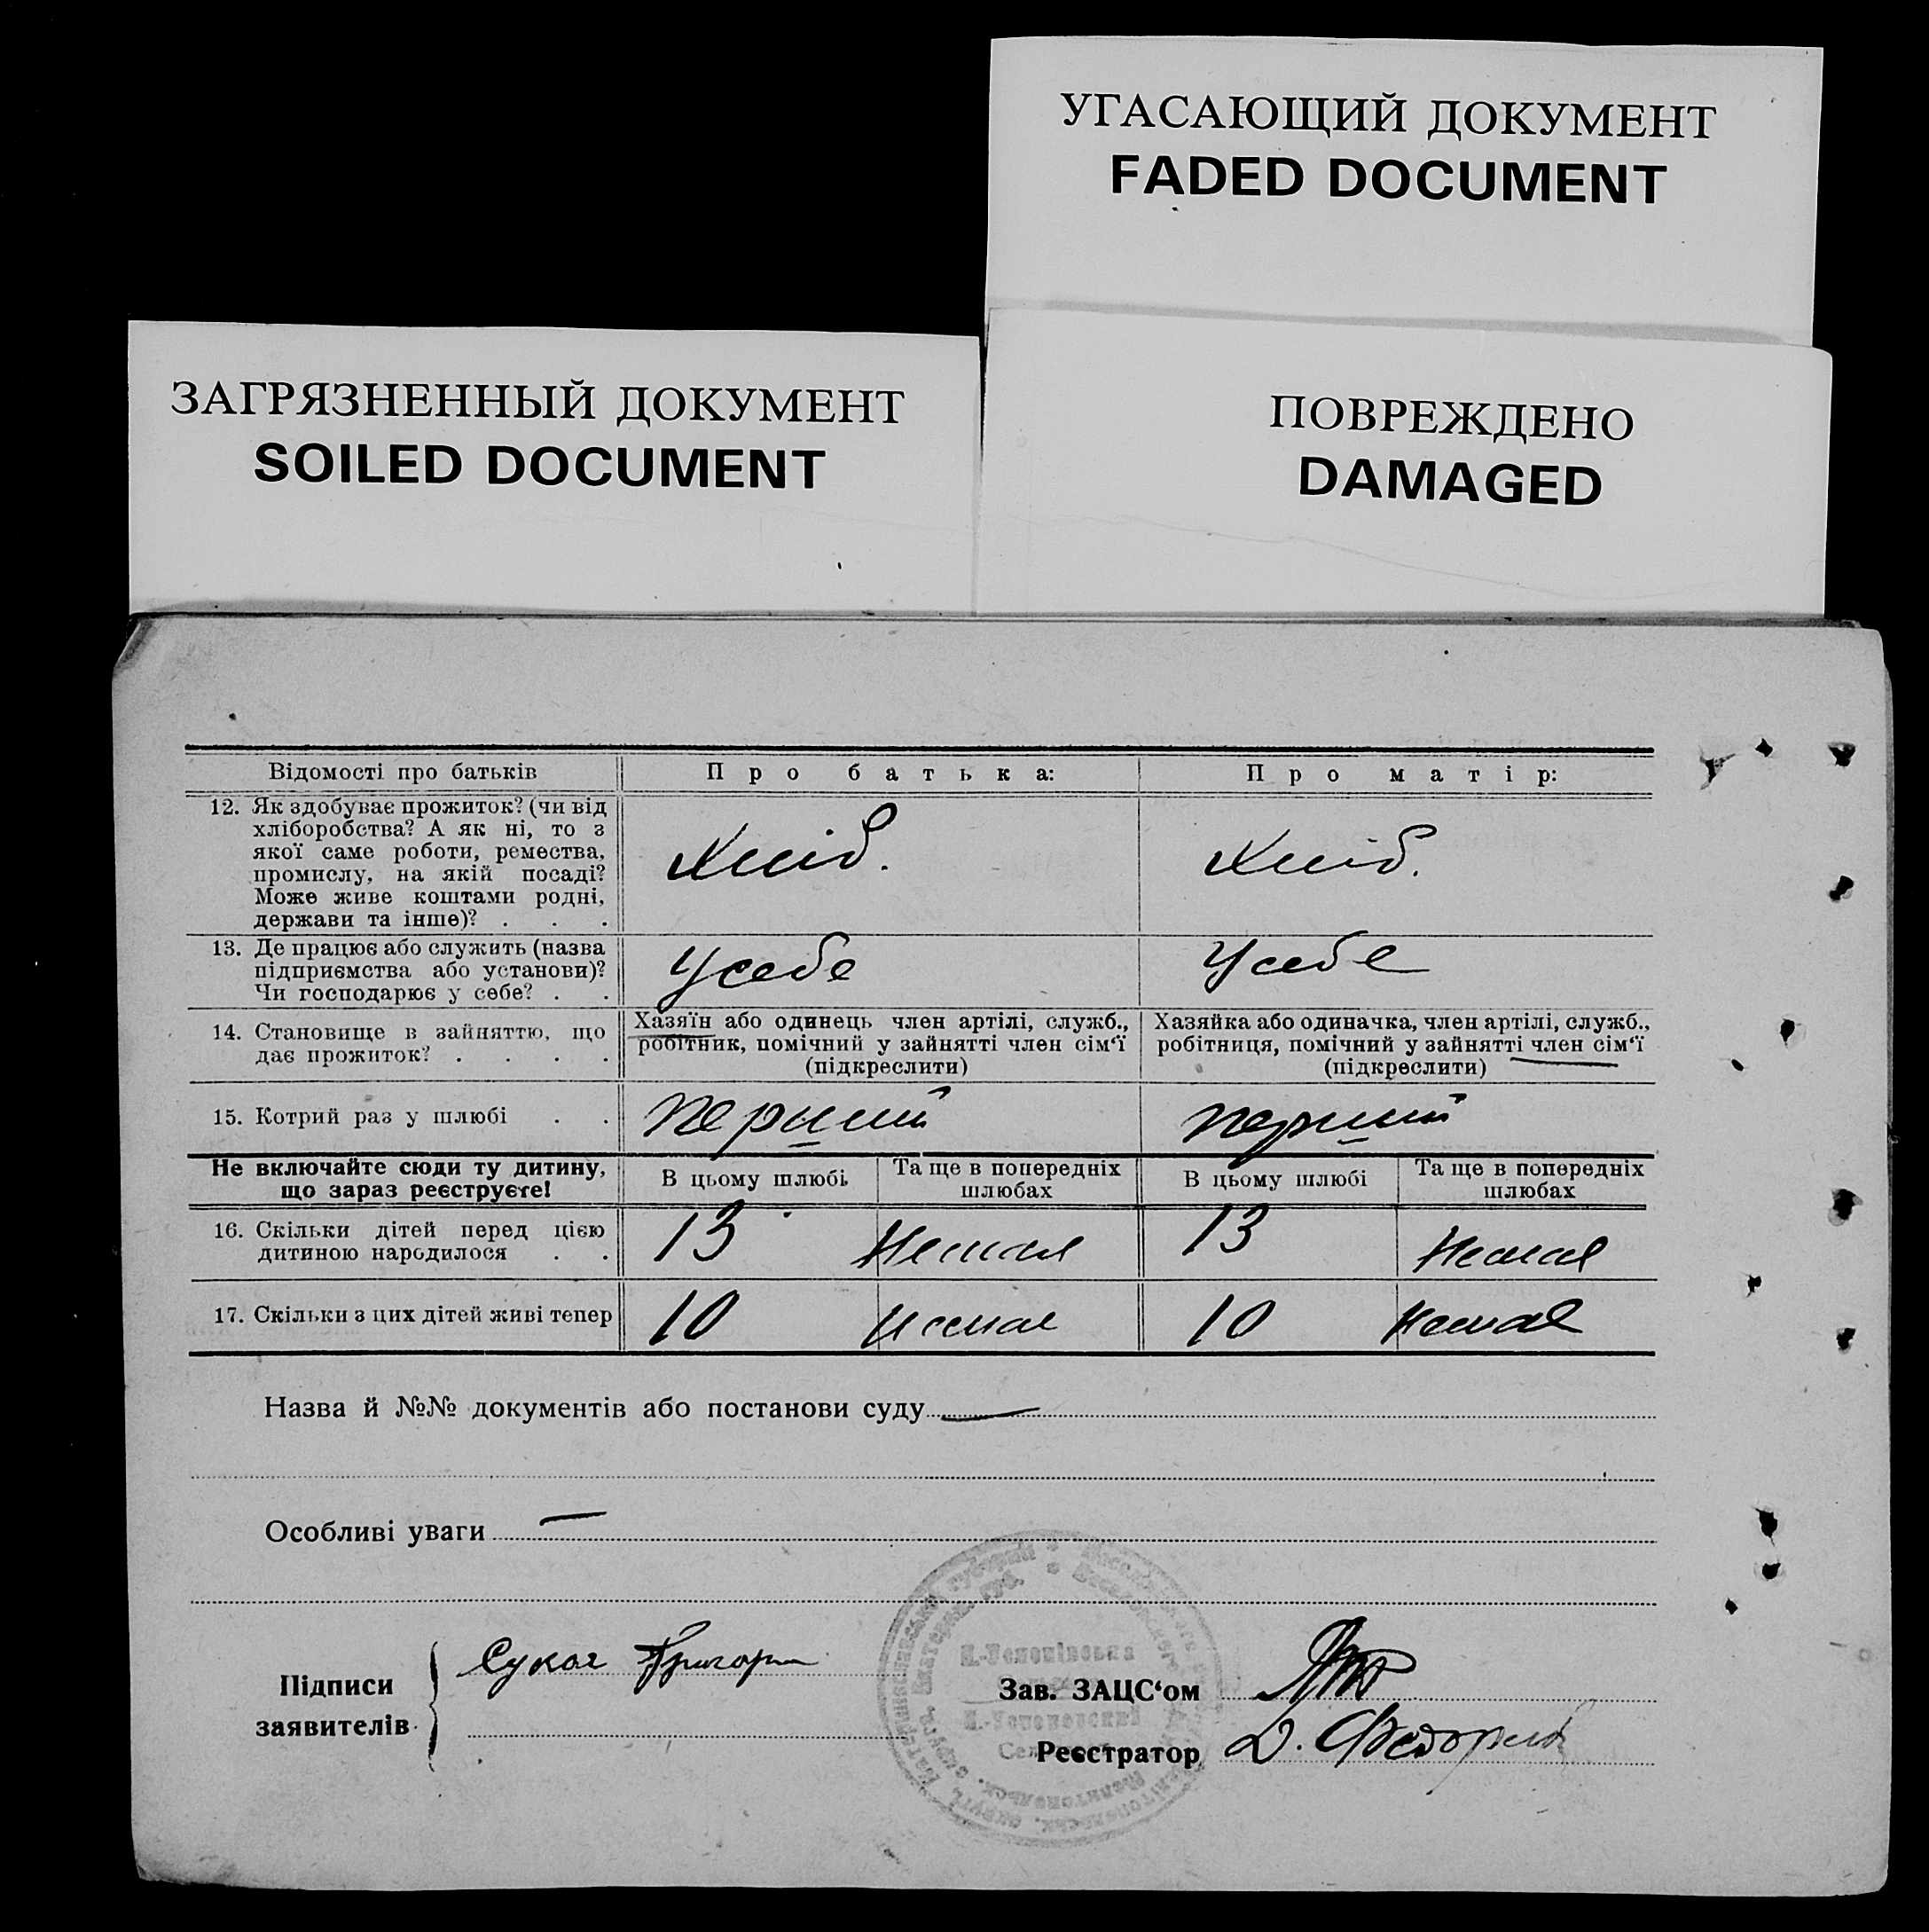 УГАСАЮЩИЙ ДОКУМЕНТ
FADED DOCUMENT
ЗАГРЯЗНЕННЫЙ ДОКУМЕНТ
SOILED DOCUMENT
ПОВРЕЖДЕНО
DAMAGED
Відомості про батьків Про батька: Про матір:
12. Як здобуває прожиток? (чи від
хліборобства? А як ні, то з
якої саме роботи, ремества,
промислу, на якій посаді?
Може живе коштами родні,
держави та інше)? . . .
Хліб. Хліб.
13. Де працює або служить (назва
підприємства або установи)?
Чи господарює у себе? . .
У себе У себе
14. Становище в зайняттю, що
дає прожиток? . . . .
Хазяїн або одинець член артілі, служб.,
робітник, помічний у зайнятті член сім‘ї
(підкреслити)
Хазяйка або одиначка, член артілі, служб.,
робітниця, помічний у зайнятті член сім‘ї
(підкреслити)
15. Котрий раз у шлюбі . . перший перший
Не включайте сюди ту дитину,
що зараз реєструєте!
В цьому шлюбі Та ще в попередніх
шлюбах
В цьому шлюбі Та ще в попередніх
шлюбах
16. Скільки дітей перед цією
дитиною народилося . .
13 Немає 13 Немає
17. Скільки з цих дітей живі тепер 10 немає 10 Немає
Назва й №№ документів або постанови суду —
Особливі уваги —
Підписи
заявителів
Сукач Григори
Зав. ЗАЦС‘ом
Реєстратор Д.